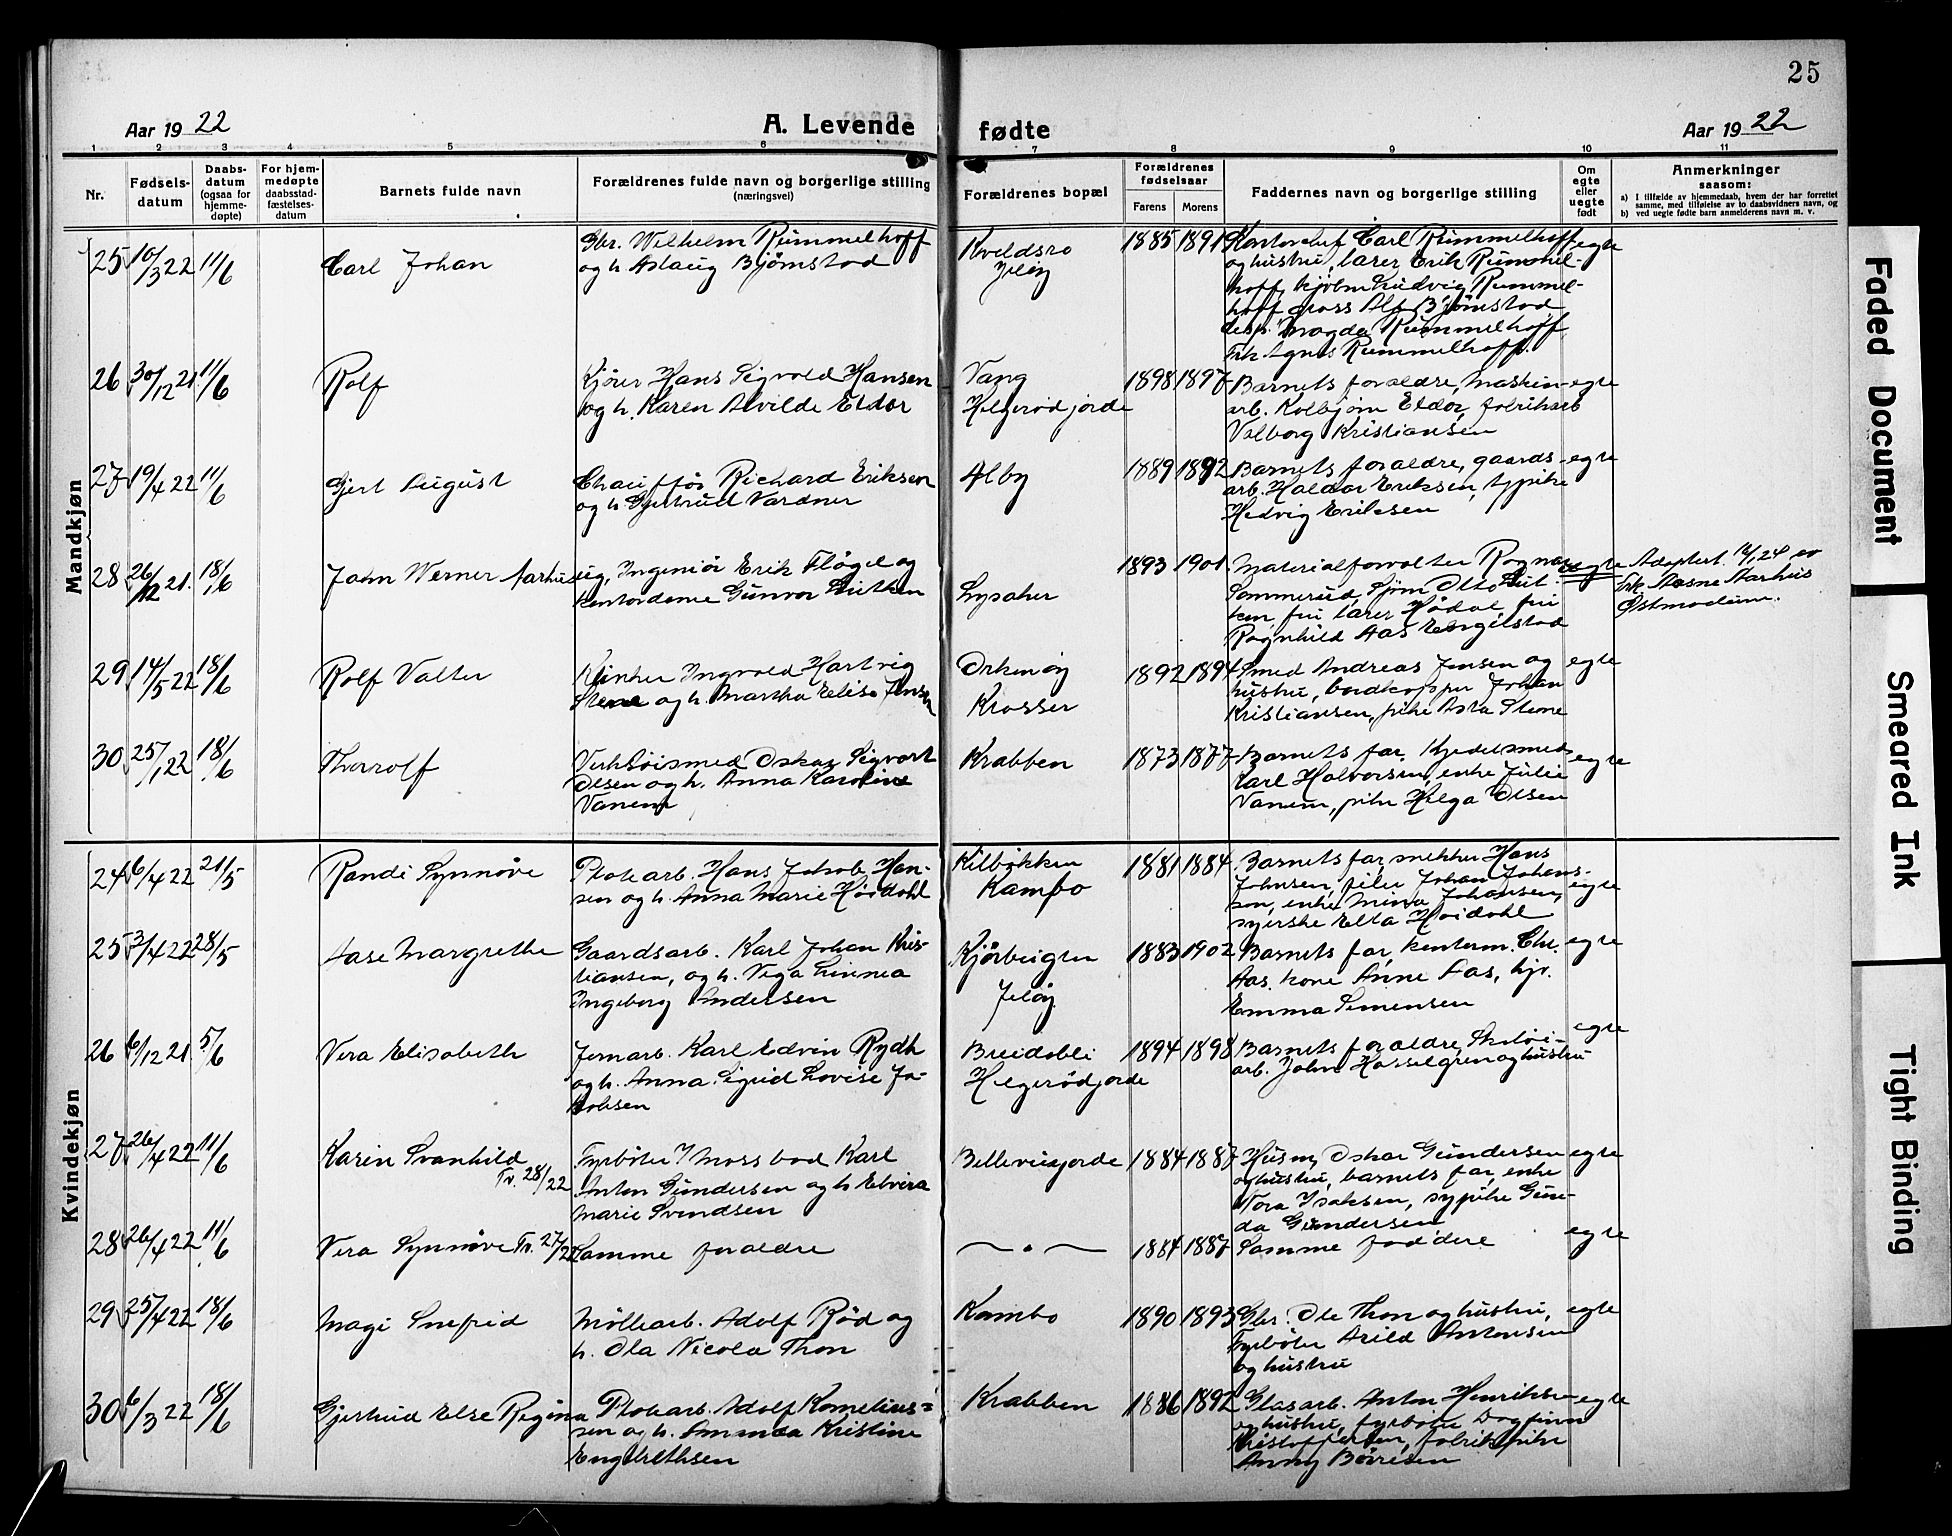 25
Aar 1922
A. Levende
fødte
Aar 1922
1 2 3 4 5 6 7 8 9 10 11
Nr.
Fødsels-
datum
Daabs-
datum
(ogsaa for
hjemme-
døpte)
For hjem-
medøpte
daabsstad-
fæstelses-
datum
Barnets fulde navn
Forældrenes fulde navn og borgerlige stilling
(næringsvei)
Forældrenes bopæl
Forældrenes
fødselsaar
Farens
Morens
Faddernes navn og borgerlige stilling
Om
egte
eller
uegte
født
Anmerkninger
saasom:
a) I tilfælde av hjemmedaab, hvem der har forrettet
samme, med tilføielse av to daabsvidners navn, og
b) ved uegte fødte barn anmelderens navn m. v.
Mandkjøn
25 10/3 22 11/6
Carl Johan
Gbr. Wilhelm Rummelhoff
og h. Aslaug Bjørnstad
Kveldsro
Jeløy
1885 1891
Kontorchef Carl Rummelhoff
og hustru, lærer Erik Rummel-
hoff, Ludvig Rummel-
hoff, gross Alf Bjørnstad,
Magda Rummelhoff,
Frk. Agnes Rummelhoff.
egte
26 30/12 21 11/6
Rolf
Kjører Hans Sigvald Hansen
og h. Karen Alvilde Eldor
Vang
Helgerødjorde
1898 1897
Barnets forældre, Maskin-
arb. Kolbjørn Eldor, fabrikarb
Valborg Kristiansen
egte
27 19/4 22 11/6
Gert August
Chauffør Richard Eriksen
og h. Gjertrud Vardner
Alby
1889 1892
Barnets forældre, gaards-
arb. Haldor Eriksen, sypike
Hedvig Eriksen
egte
28 26/12 21. 18/6
John Werner Aarhus
ug, Ingeniør Erik Fløgel og
Kontordame Gunvor Luitken
Lysaker
1893 1901
Materialforvalter Ragnar
Sommerud, Otto Luit-
ken, fru lærer Hødal, fru
Ragnhild Aas Engelstad
uegte
Adoptert 12/1 24 av
Frk Aasne Aarhus
Østmodum.
29 14/5 22 18/6
Rolf Valter
Ingvald Hartvig
Stene og h. Martha Elise Jensen
Orkenøy
Krosser
1892 1894
Smed Andreas Jensen og
hustru, Johan
Kristiansen, pike Asta Stene
egte
30 25/1 22 18/6
Thorrolf
Verktøismed Oskar Sigvart
Olsen og h. Anna Karoline
Vanem
Krabben
1873 1877
Barnets far, Kjedelsmed
Karl Halvorsen, enke Julie
Vanem, pike Helga Olsen
egte
Kvindekjøn
24 6/4 22 21/5
Randi Synnøve
Hans Jakob Han-
sen og h. Anna Marie Høidahl
Kilbækken
Kambo
1881 1884
Barnets far, snekker Hans
Johnsen, Johan Johans-
son, enke Mina Johansen,
syerske Elta Høidahl
egte
25 3/4 22 28/5
Aase Margrethe
Gaardsarb. Karl Johan Kris-
tiansen, og h. Vega Linnea
Ingeborg Andersen
Jeløy
1883 1902
Barnets far, kontorm. Chr.
Aas, kone Anne Aas, hjv.
Emma Simensen
egte
26 6/12 21. 5/6
Vera Elisabeth
Jernarb. Karl Edvin Rydh
og h. Anna Sigrid Lovise Ja-
kobsen
Breidabli
Helgerødjorde
1894 1898
Barnets forældre, Skotøi-
arb. John Hasselgren og hustru
egte
27 26/4 22 11/6
Karin Svanhild
Tv. 28/22
Fyrbøter I Moss bad Karl
Anton Gundersen og h Elvira
Marie Svendsen
Bellevuejorde
1884 1887
Husm. Oskar Gundersen
og hustru, barnets far, enke
Nora Isaksen, sypike Gun-
da Gundersen
egte
28 26/4 22 11/6
Vera Synnøve Tv. 27/22
Samme forældre
— " —
1884 1887
Samme faddere
egte
29 25/4 22 18/6
Magi Snefrid
Møllearb. Adolf Rød og
h. Ola Nicola Thon
Kambo
1890 1893
Gbr. Ole Thon og hustru,
Fyrbøter Arild Antonsen
og hustru
egte
30 6/3 22 18/6
Gjertrud Else Regina
Adolf Kornelius-
sen og h. Amanda Kristine
Engebrethsen
Krabben
1886 1892
Glasarb. Anton Henriksen
og hustru, fyrbøter Dagfinn
Kristoffersen, fabrikpike
Anny Børresen
egte
Faded Document
Smeared Ink
Tight Binding